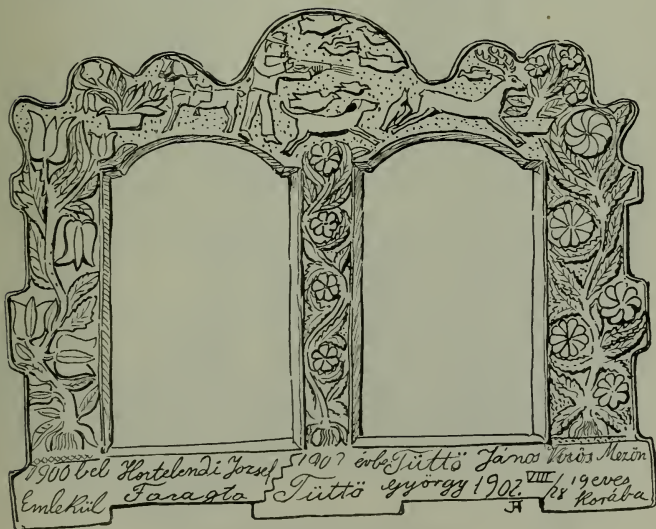 1900 bel Hortelendi Jozsef 1902 évbe Tüttö János Vörös Mezön
Emlekül Faragta Tüttö györgy 1902. VIII/28 19 eves Korába